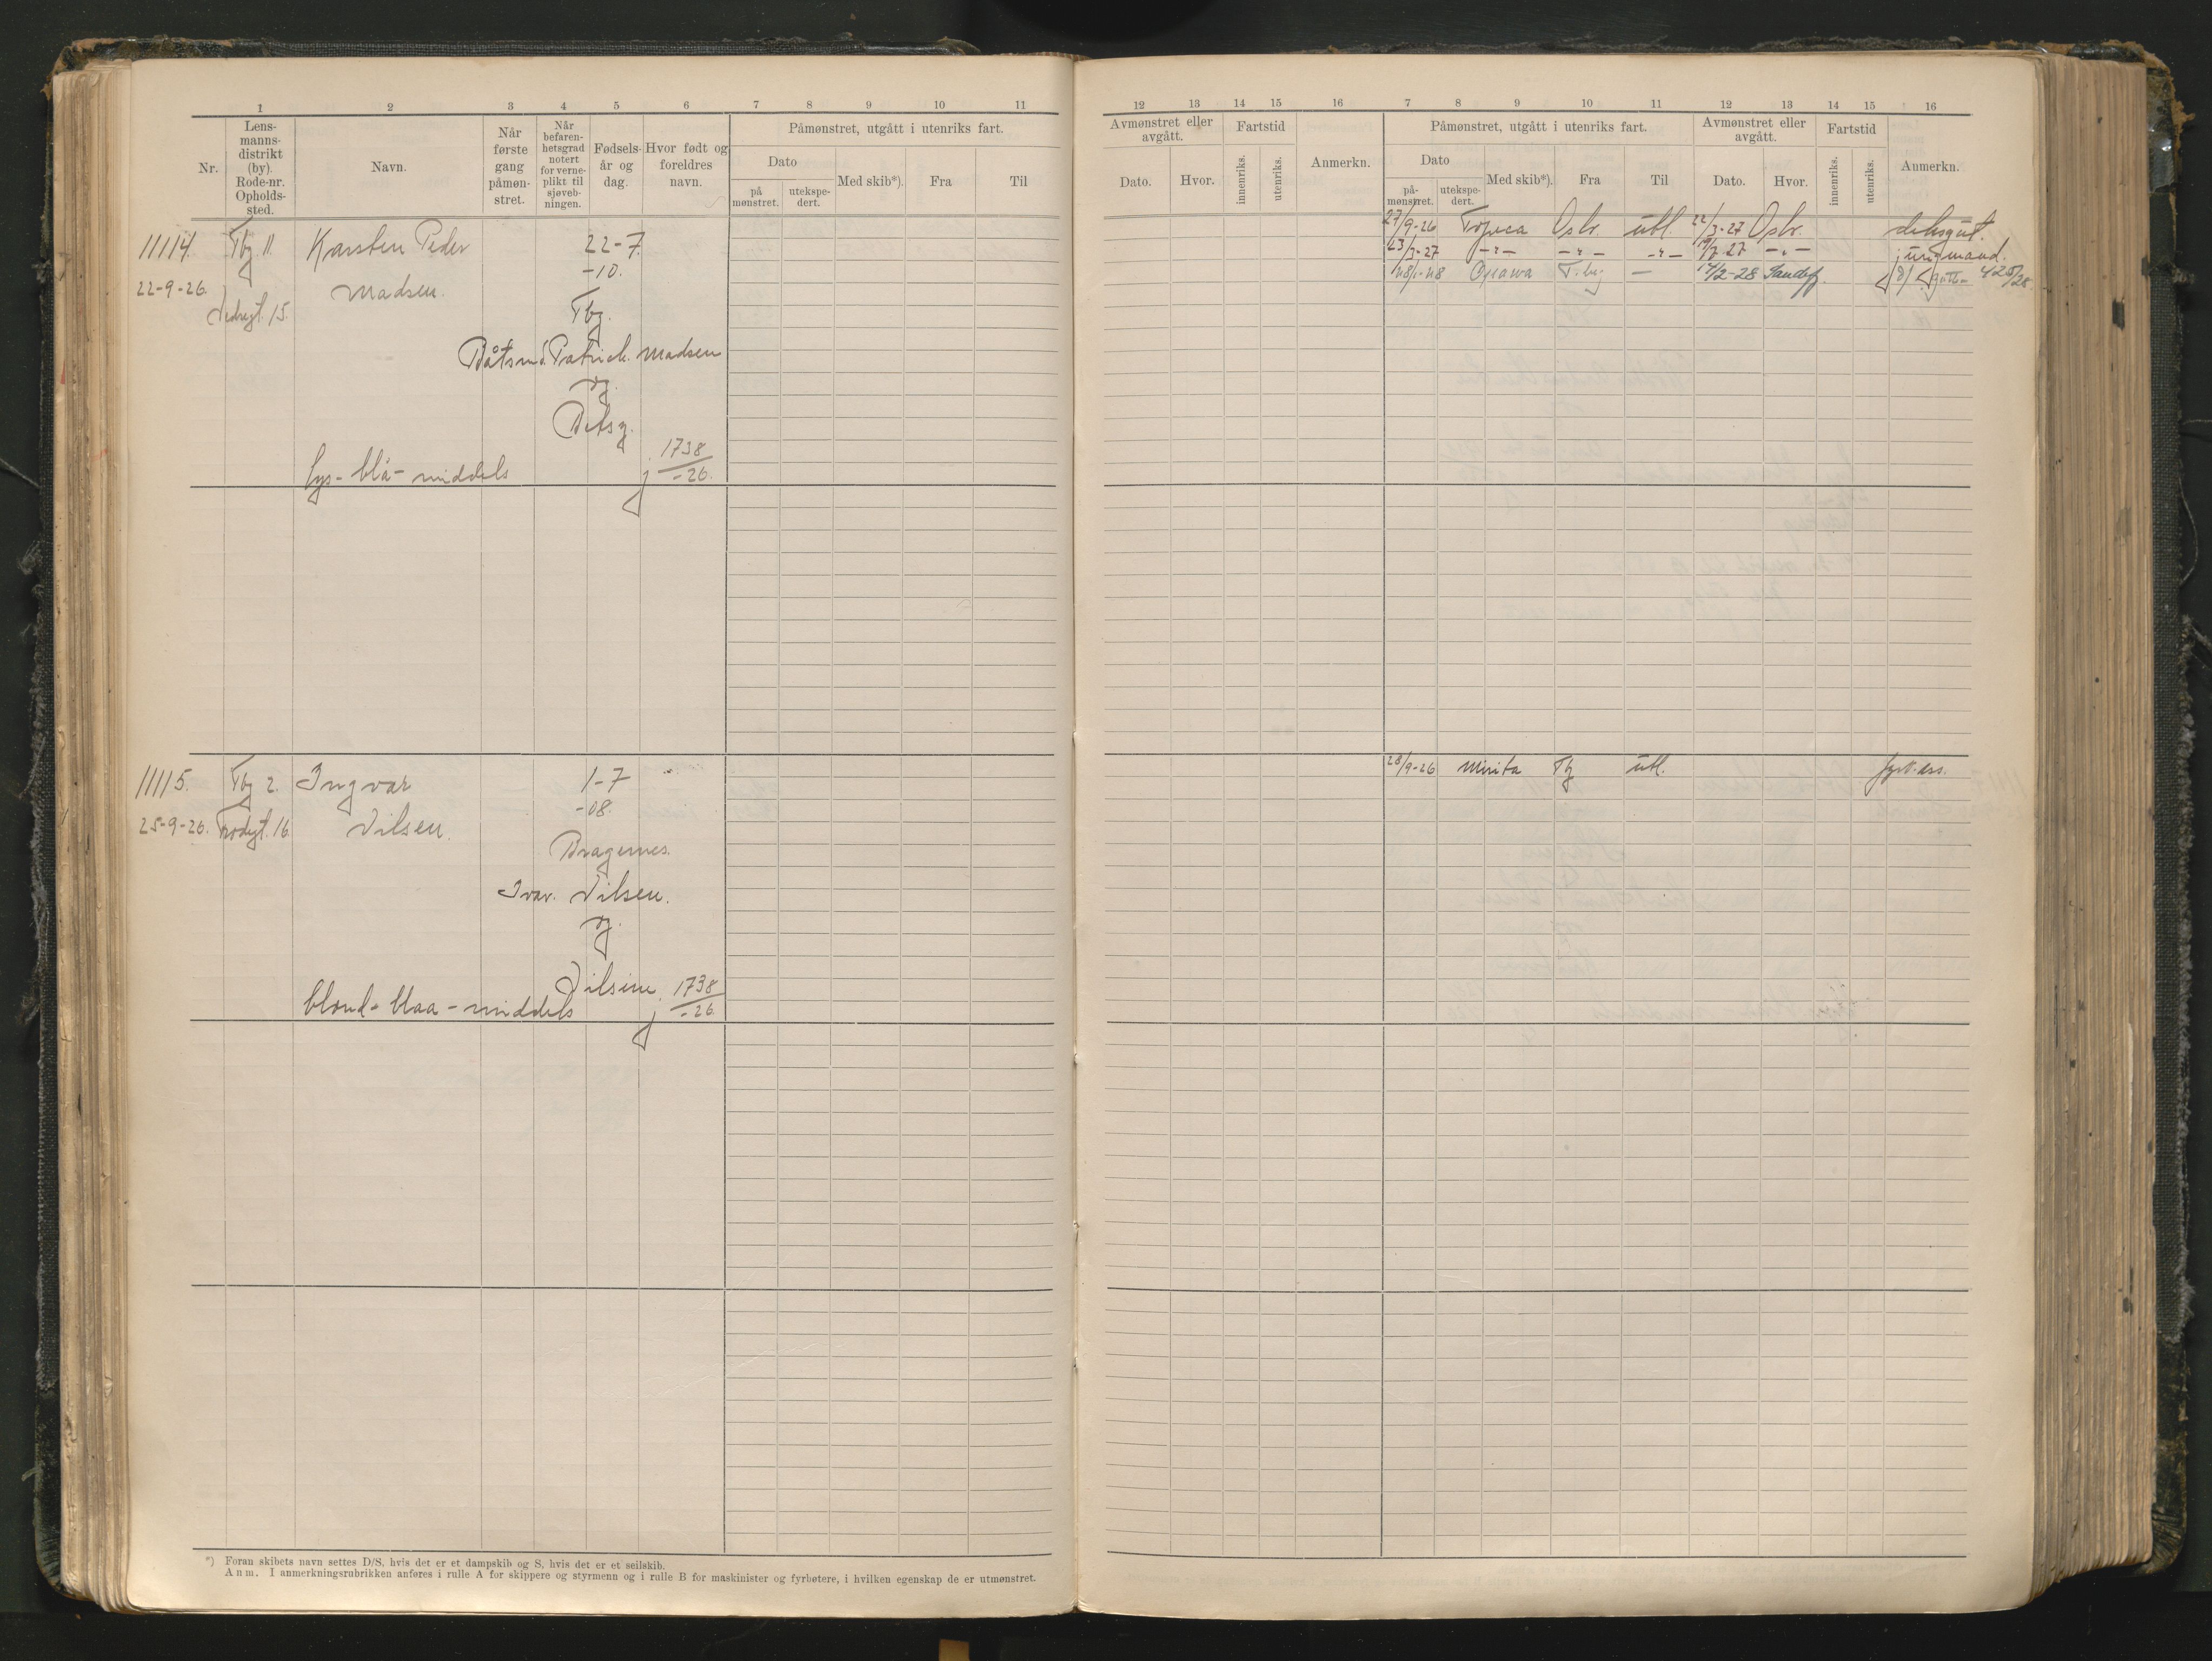 1 2 3 4 5 6 7 8 9 10 11
Nr.
Lens-
manns-
distrikt
(by).
Rode-nr.
Opholds-
sted.
Navn.
Når
første
gang
påmøn-
stret.
Når
befaren-
hetsgrad
notert
for verne-
plikt til
sjøveb-
ningen.
Fødsels-
år og
dag.
Hvor født og
foreldres
navn.
Påmønstret, utgått i utenriks fart.
Dato
på
mønstret.
utekspe-
dert.
Med skib*).
Fra
Til
11114. Tbg 11. Karsten Peder 22-7
22-9-26. Madsen. -10.
15. Tbg.
Båtsm. Patrick Madsen
og
Betsy.
Lys - blå - middels j. 1738/-26.
11115. Tbg 2. Ingvar 1-7
25-9-26. 16. Nilsen. -08.
Bragernes.
Ivar Nilsen.
og
Nilsine.
blond - blaa - middels j. 1738/-26.
*) Foran skibets navn settes D/S, hvis det er et dampskib og S, hvis det er et seilskib.
Anm. I anmerkningsrubrikken anføres i rulle A for skippere og styrmenn og i rulle B for maskinister og fyrbøtere, i hvilken egenskap de er utmønstret.
12 13 14 15 16 7 8 9 10 11 12 13 14 15 16
Avmønstret eller
avgått.
Dato.
Hvor.
Fartstid
innenriks.
utenriks.
Anmerkn.
Påmønstret, utgått i utenriks fart.
Dato
på-
mønstret.
utekspe-
dert.
Med skib*).
Fra
Til
Avmønstret eller
avgått.
Dato.
Hvor.
Fartstid
innenriks.
utenriks.
Anmerkn.
27/9-26 Topeca Oslo. utl. 22/3-27 Oslo. dæksgut.
23/3-27 -"- -"- -"- 19/7-27 -"- jungmand.
Ossawa T.bg — 14/2-28 Sandefj. 425/28.
28/9-26 Mirita Tbg utl. fyrb. ass.